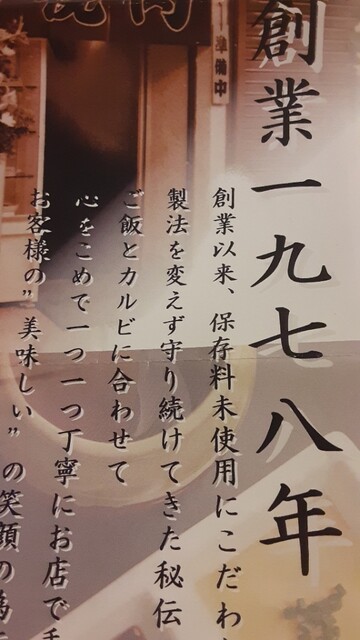 準備中
創業一九七八年
創業以来、保存料未使用にこだわ
製法を変えず守り続けてきた秘伝
ご飯とカルビに合わせて
心をこめて一つ一つ丁寧にお店で手
お客様の”美味しい”の笑顔の為